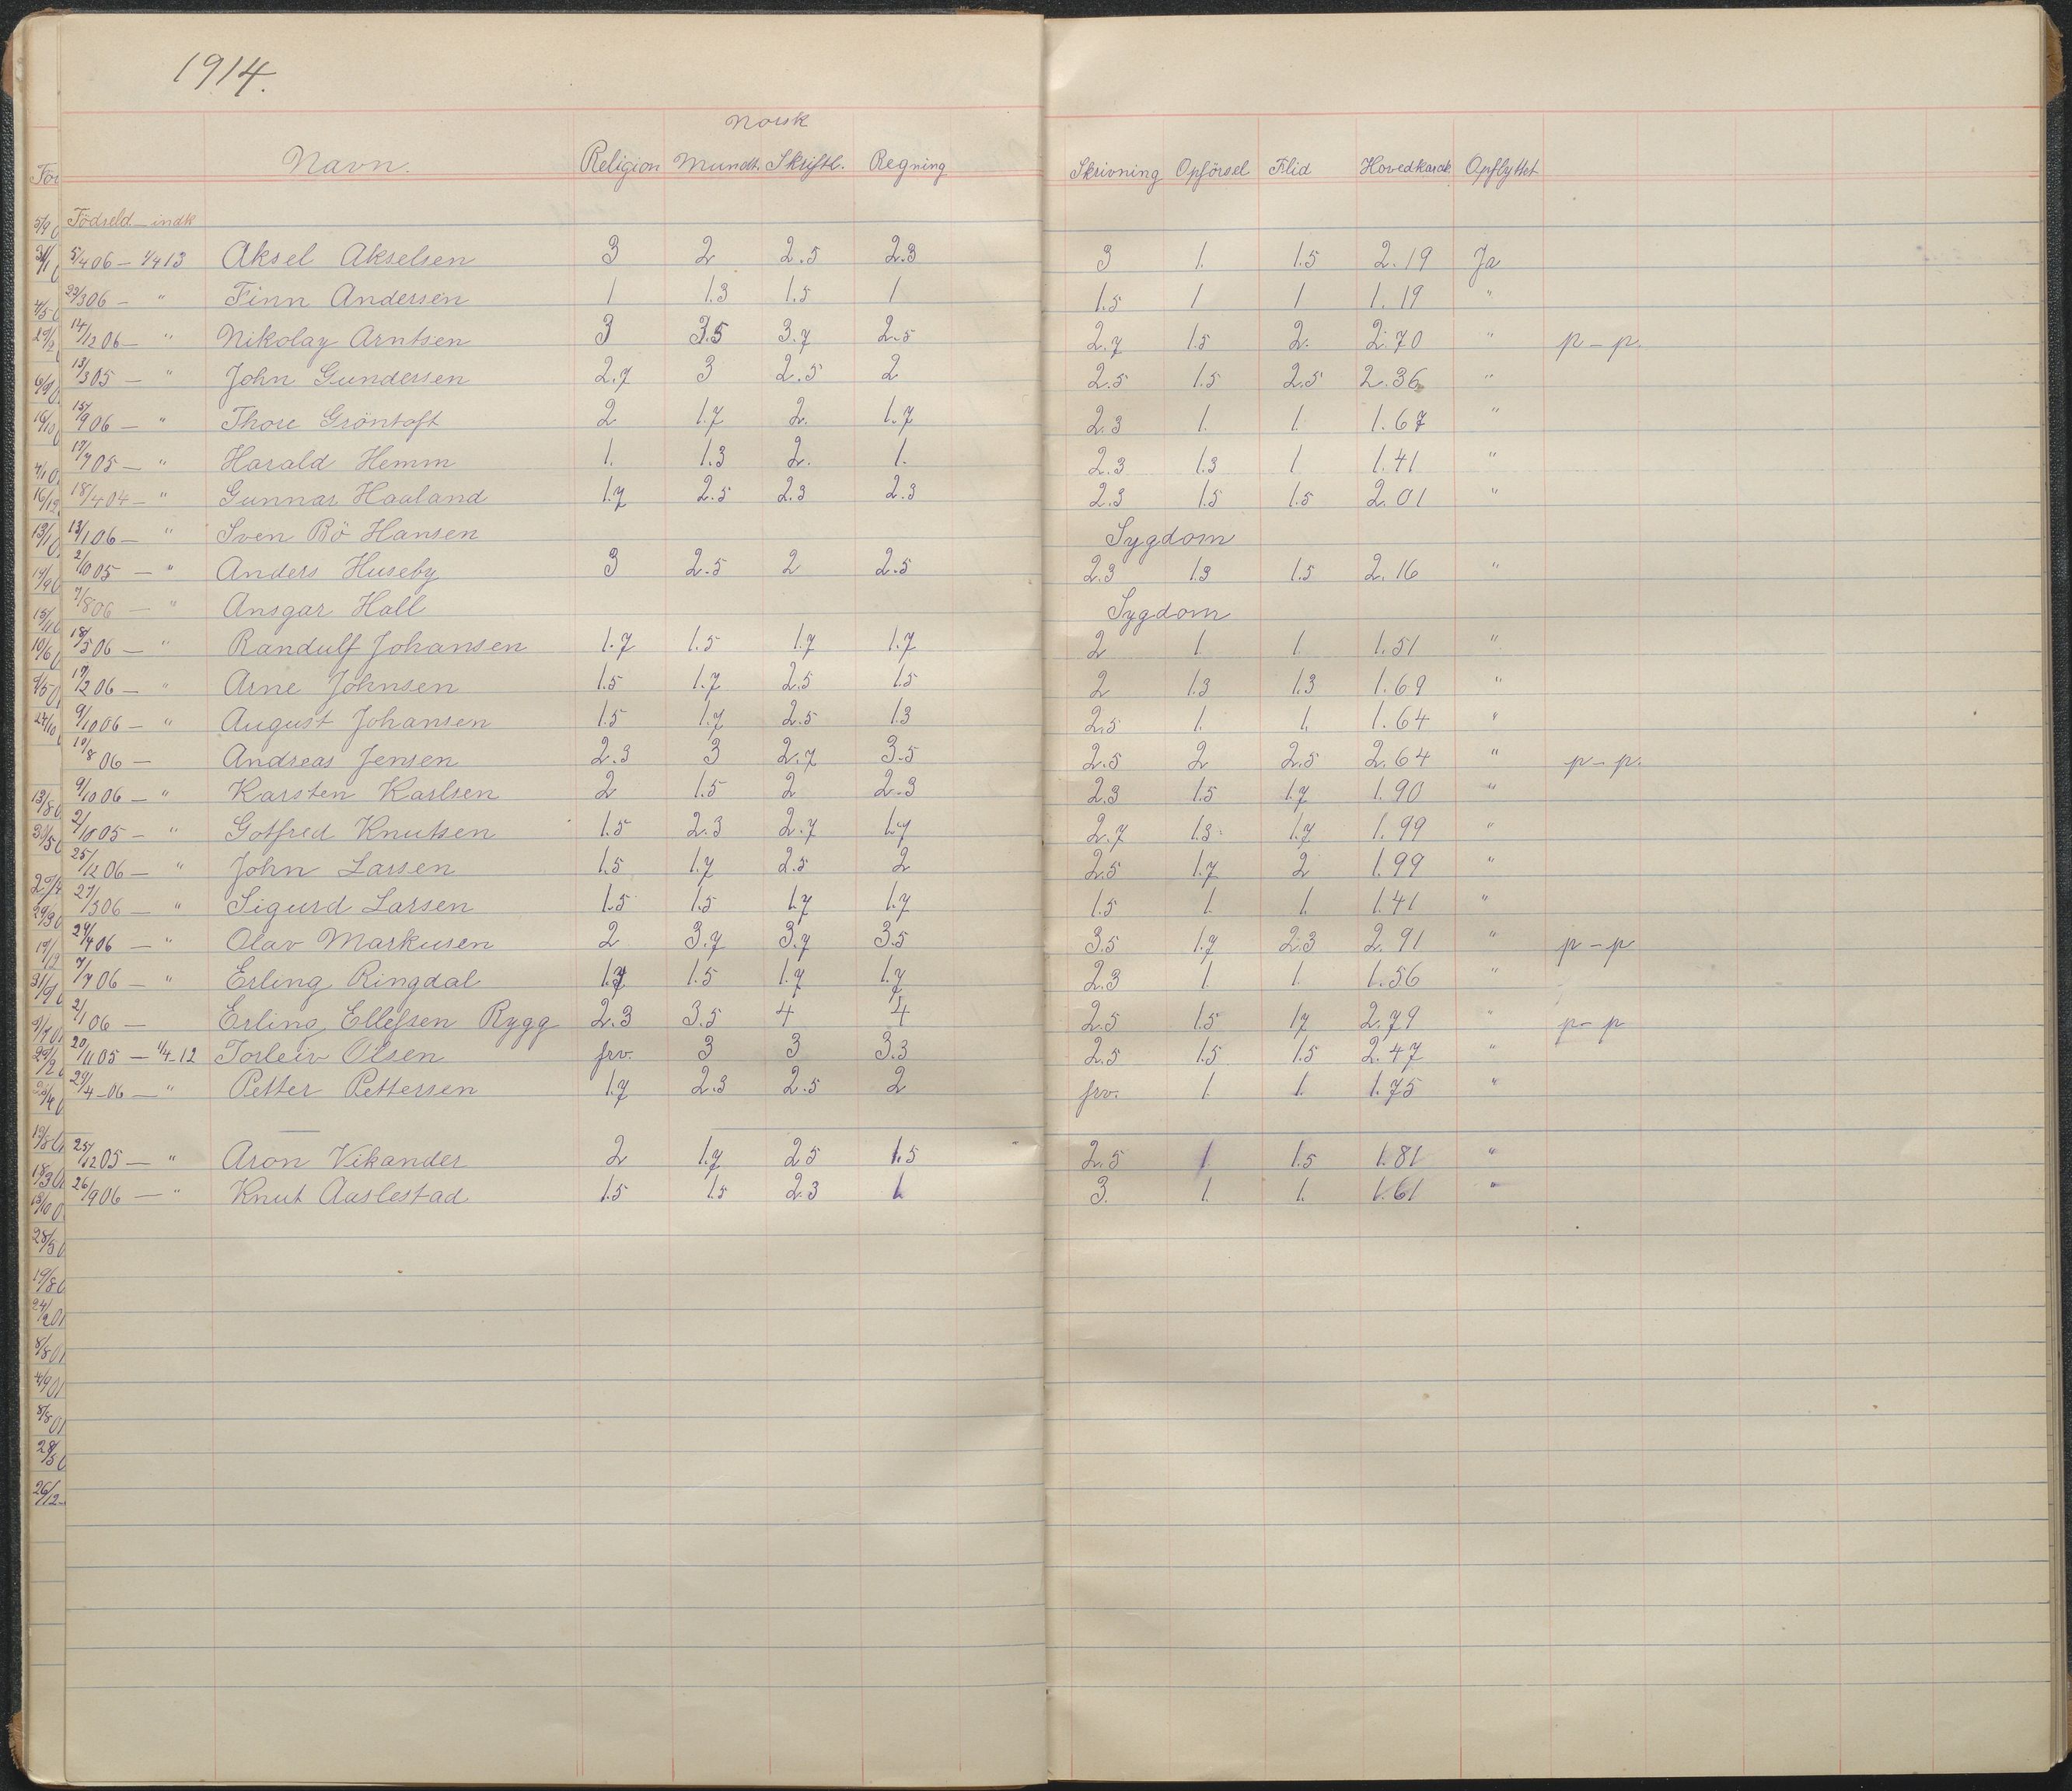 1914.
Norsk
Navn. Religion Mundtl. Skriftl. Regning Skrivning Opförsel Flid Hovedkarak. Opflyttet
Födseld. — indk
5/4 06 — 1/4 13 Aksel Akselsen 3 2 2.5 2.3 3 1. 1.5 2.19 Ja
22/3 06 — " Finn Andersen 1 1.3 1.5 1 1.5 1 1 1.19 "
14/12 06 — " Nikolay Arntsen 3 3.5 3.7 2.5 2.7 1.5 2. 2.70 " p - p.
13/3 05 — " John Gundersen 2.7 3 2.5 2 2.5 1.5 2.5 2.36 "
15/9 06 — " Thore Gröntoft 2 1.7 2. 1.7 2.3 1. 1. 1.67 "
17/7 05 — " Harald Hemm 1. 1.3 2. 1. 2.3 1.3 1 1.41 "
18/4 04 — " Gunnar Haaland 1.7 2.5 2.3 2.3 2.3 1.5 1.5 2.01 "
13/1 06 — " Sven Bö Hansen Sygdom
2/10 05 — " Anders Huseby 3 2.5 2 2.5 2.3 1.3 1.5 2.16 "
7/8 06 — " Ansgar Hall Sygdom
18/5 06 — " Randulf Johansen 1.7 1.5 1.7 1.7 2 1 1 1.51 "
19/2 06 — " Arne Johnsen 1.5 1.7 2.5 1.5 2 1.3 1.3 1.69 "
9/10 06 — " August Johansen 1.5 1.7 2.5 1.3 2.5 1. 1. 1.64 "
10/8 06 — Andreas Jensen 2.3 3 2.7 3.5 2.5 2 2.5 2.64 " p - p.
9/10 06 — " Karsten Karlsen 2 1.5 2 2.3 2.3 1.5 1.7 1.90 "
2/10 05 — " Gotfred Knutsen 1.5 2.3 2.7 1.7 2.7 1.3 1.7 1.99 "
25/12 06 — " John Larsen 1.5 1.7 2.5 2 2.5 1.7 2 1.99 "
27/3 06 — " Sigurd Larsen 1.5 1.5 1.7 1.7 1.5 1. 1. 1.41 "
24/4 06 — " Olav Markusen 2 3.7 3.7 3.5 3.5 1.7 2.3 2.91 " p - p
7/7 06 — " Erling Ringdal 1.7 1.5 1.7 1.7 2.3 1 1. 1.56 "
2/1 06 — Erling Ellefsen Rygg 2.3 3.5 4 4 2.5 1.5 17 2.79 " p - p
20/11 05 — 1/4-12 Torleiv Olsen frv. 3 3 3.3 2.5 1.5 1.5 2.47 "
29/4-06 — " Petter Pettersen 1.7 2.3 2.5 2 frv. 1. 1. 1.75 "
25/12 05 — " Aron Vikander 2 1.7 25 1.5 2.5 1 1.5 1.81 "
26/9 06 — " Knut Aaslestad 1.5 1.5 2.3 1. 3. 1. 1. 1.61 "